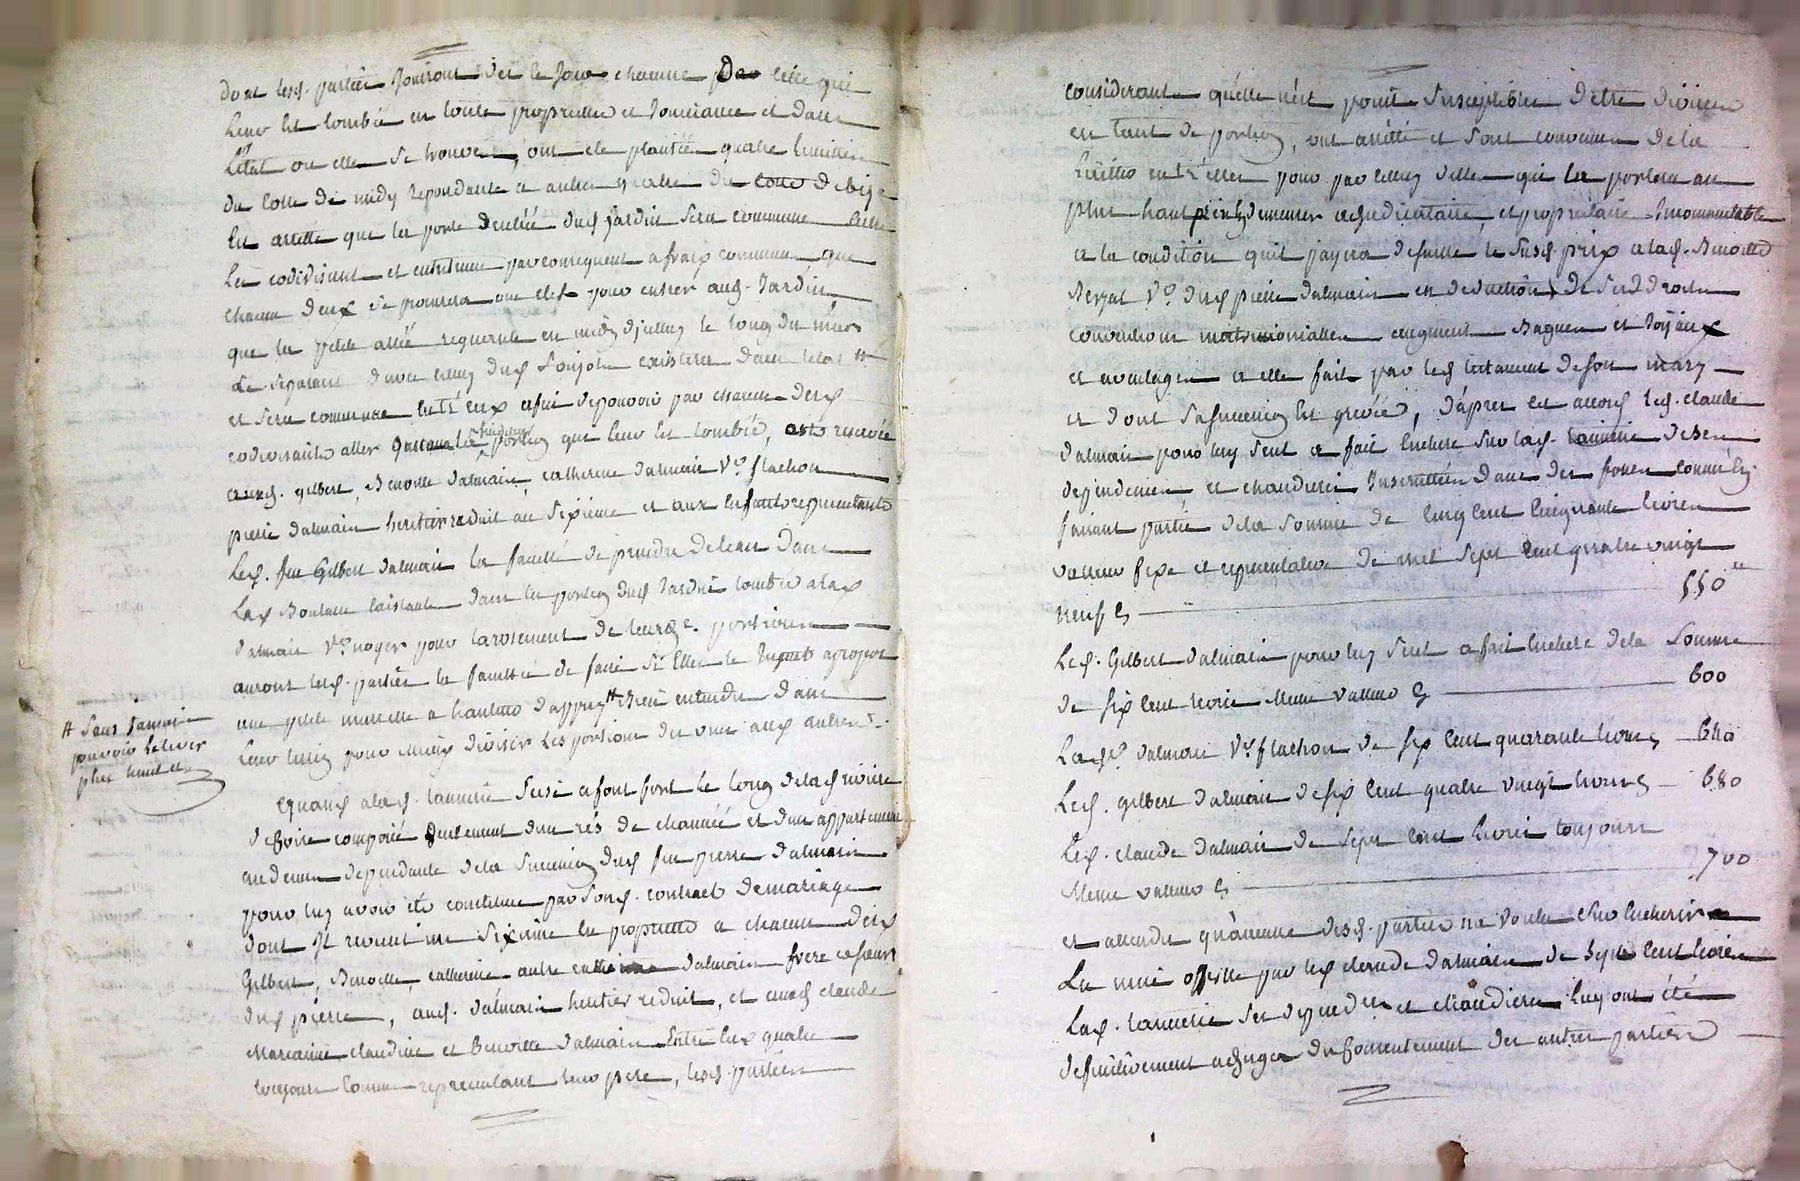 dont lesd. parties Jouiront des le Jour chacune de celle qui
leur Est tombée en toute proprietté et Jouissance et dans
L'état ou elle se trouve, ont été plantée quatre limittes
du cotté de midy repondante a autre quatre du cotté de bize
Est arretté que la porte d'entrée dud. jardin sera commune Entre
Les codivisant et entretenue par consequent a fraix commun que
chacun d'eux se procurera une clef pour entrer aud. Jardin
que la petite allée requerante en midy djcelluy le long du mur
Le separant d'avec celluy dud. existera dans letat
et sera commune Entr'eux afin de pouvoir par chacun desd.
codivisants aller dans la portion que leur Est tombée, est reservée
auxd. gilbert, Benoitte dalmais, catherine dalmais Ve. flachon
pierre dalmais heritier reduit au sixieme et aux Enfants representants
Led. feu Gilbert dalmais la faculté de prendre de l'eau dans
Lad. existante dans la portion dud. Jardin tombée a lad.
dalmais Ve. noyer pour l'arrosement de leurs d. portions
auront lesd. parties la faculté de faire si Elles le Jugent apropos
une petite muraille a hauteur d'appuy # Bien entendu dans
Leur terrein pour mieux diviser les portions des unes aux autres.
# Sans Jamais
pouvoir L'elever
plus haut et
Quand a lad. tannerie sise a font fort le long de lad. riviere
de Boire composée seulement d'un rés de chaussée et d'un appartement
au dessus dependante de la succession dud. feu pierre dalmais
pour luy avoir été constituée par sond. contract de mariage
dont Il revient un sixieme en proprietté a chacun d'eux
Gilbert, Benoitte, catherine autre catherine dalmais frere et soeurs
dud. pierre, aud. dalmais heritier reduit, et auxd. claude
Marianne claudine et Benoitte dalmais Entre Eux quatre
toujours comme representant leur pere, lesd. parties
considerant qu'elle n'est point susceptible d'être divisée
en tant de portion, ont arretté et sont convenues de la
liciter entr'elles pour par celluy d'elles qui la portera au
plus haut prix demeurer adjudicataire, et proprietaire Incommutable
a la condition qu'il payera de suitte le susd. prix a lad. Benoitte
Ve. dud. pierre dalmais en deduction de ses d. droits
conventions matrimonialles augment Bagues et Joyaux
et avantages a elle fait par led. testament de son mary
et dont sa succession Est grevée, d'apres cet accord led. claude
dalmais pour luy seul a fait Enchere sur lad. tannerie de ses
dependances et chaudieres dans des fosses
faisant partie de la somme de Cinq Cent Cinquante livres
valleur fixe et representative de mil sept cent quatre vingt
neuf Cy 550
Led. Gilbert dalmais pour luy seul a fait Enchere de la somme
de six Cent livres Meme valleur Cy 600
La d. dalmais Ve. flachon de six Cent quarante livres Cy 640
Led. gilbert dalmais de six Cent quatre vingt livres Cy 680
Led. claude dalmais de sept Cent livres toujours
Meme valleur Cy 700
et attendu qu'aucune desd. parties n'a voulu Encherir
La mise offerte par led. claude dalmais de sept Cent livres
Lad. tannerie ses dependces et chaudieres luy ont été
definitivement adjugée du consentement des autres parties